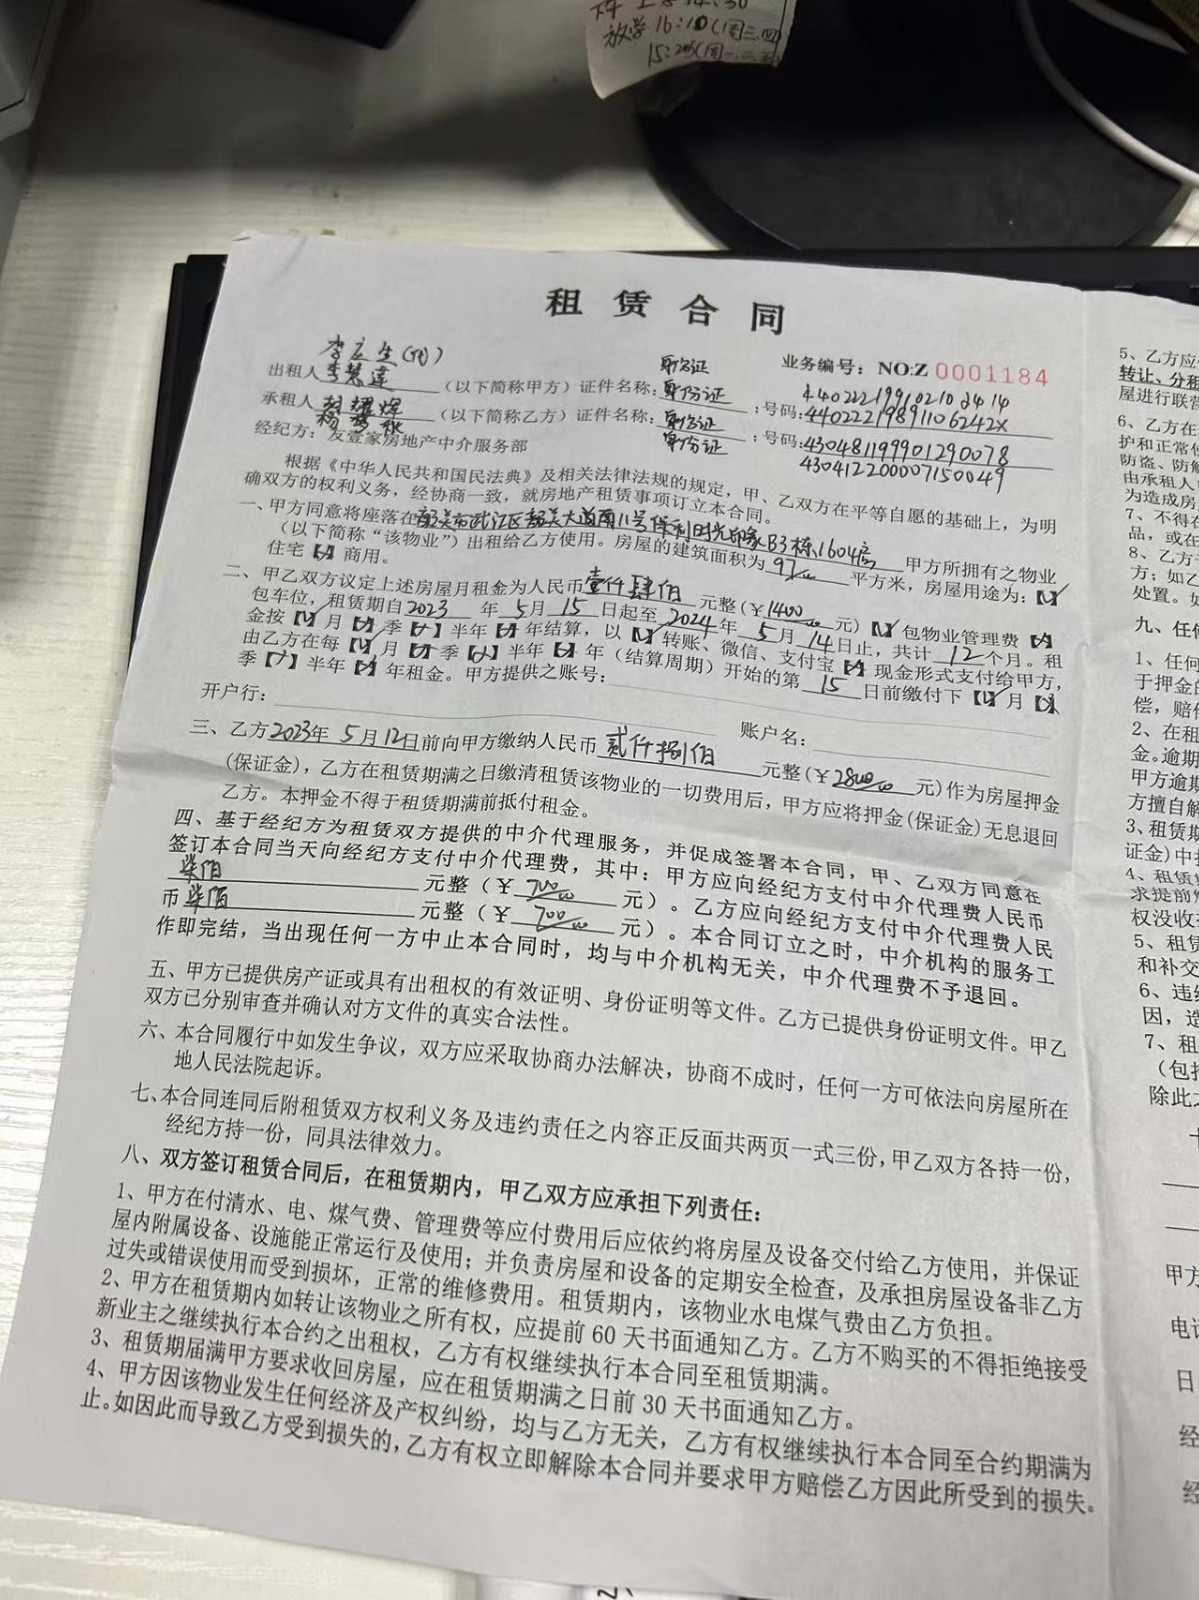 放学 16:10(周三、四
租赁合同
业务编号：NO:Z 0001184
李广生(代)
身份证
440222199102102414
出租人李慧莲（以下简称甲方）证件名称：身份证；号码：44022219891106242X
承租人（以下简称乙方）证件名称：身份证；号码：430481199901290078
身份证
430412200007150049
经纪方：友壹家房地产中介服务部
根据《中华人民共和国民法典》及相关法律法规的规定，甲、乙双方在平等自愿的基础上，为明
确双方的权利义务，经协商一致，就房地产租赁事项订立本合同。
一、甲方同意将座落在韶关市武江区韶关大道南11号保利时光印象B3栋1604房甲方所拥有之物业
（以下简称“该物业”）出租给乙方使用。房屋的建筑面积为97平方米，房屋用途为：【✓】
住宅【×】商用。
二、甲乙双方议定上述房屋月租金为人民币壹仟肆佰元整（￥1400元）【✓】包物业管理费【×】
包车位，租赁期自2023年5月15日起至2024年5月14日止，共计12个月。租
金按【✓】月【×】季【×】半年【×】年结算，以【✓】转账、微信、支付宝【×】现金形式支付给甲方，
由乙方在每【✓】月【×】季【×】半年【×】年（结算周期）开始的第15日前缴付下【✓】月【×】
季【×】半年【×】年租金。甲方提供之账号：
开户行：账户名：
三、乙方2023年5月12日前向甲方缴纳人民币贰仟捌佰元整（￥2800元）作为房屋押金
（保证金），乙方在租赁期满之日缴清租赁该物业的一切费用后，甲方应将押金(保证金)无息退回
乙方。本押金不得于租赁期满前抵付租金。
四、基于经纪方为租赁双方提供的中介代理服务，并促成签署本合同，甲、乙双方同意在
签订本合同当天向经纪方支付中介代理费，其中：甲方应向经纪方支付中介代理费人民币
柒佰元整（￥700元）。乙方应向经纪方支付中介代理费人民
币柒佰元整（￥700元）。本合同订立之时，中介机构的服务工
作即完结，当出现任何一方中止本合同时，均与中介机构无关，中介代理费不予退回。
五、甲方已提供房产证或具有出租权的有效证明、身份证明等文件。乙方已提供身份证明文件。甲乙
双方已分别审查并确认对方文件的真实合法性。
六、本合同履行中如发生争议，双方应采取协商办法解决，协商不成时，任何一方可依法向房屋所在
地人民法院起诉。
七、本合同连同后附租赁双方权利义务及违约责任之内容正反面共两页一式三份，甲乙双方各持一份，
经纪方持一份，同具法律效力。
八、双方签订租赁合同后，在租赁期内，甲乙双方应承担下列责任：
1、甲方在付清水、电、煤气费、管理费等应付费用后应依约将房屋及设备交付给乙方使用，并保证
屋内附属设备、设施能正常运行及使用；并负责房屋和设备的定期安全检查，及承担房屋设备非乙方
过失或错误使用而受到损坏，正常的维修费用。租赁期内，该物业水电煤气费由乙方负担。
2、甲方在租赁期内如转让该物业之所有权，应提前60天书面通知乙方。乙方不购买的不得拒绝接受
新业主之继续执行本合约之出租权，乙方有权继续执行本合同至租赁期满。
3、租赁期届满甲方要求收回房屋，应在租赁期满之日前30天书面通知乙方。
4、甲方因该物业发生任何经济及产权纠纷，均与乙方无关，乙方有权继续执行本合同至合约期满为
止。如因此而导致乙方受到损失的，乙方有权立即解除本合同并要求甲方赔偿乙方因此所受到的损失。
5、乙方应
转让、分租
屋进行联营
6、乙方在
护和正常使
防盗、防触
由承租人
为造成房
7、不得在
品，或在
8、乙方
方；如乙
处置。如
九、任何
1、任何
于押金的
偿，赔偿
2、在租
金。逾期
甲方逾期
方擅自解
3、租赁期
证金)中
4、租赁
求提前
权没收
5、租赁
和补交
6、违约
因，造
7、租
（包括
除此之
十
甲方
电话
日
经
经